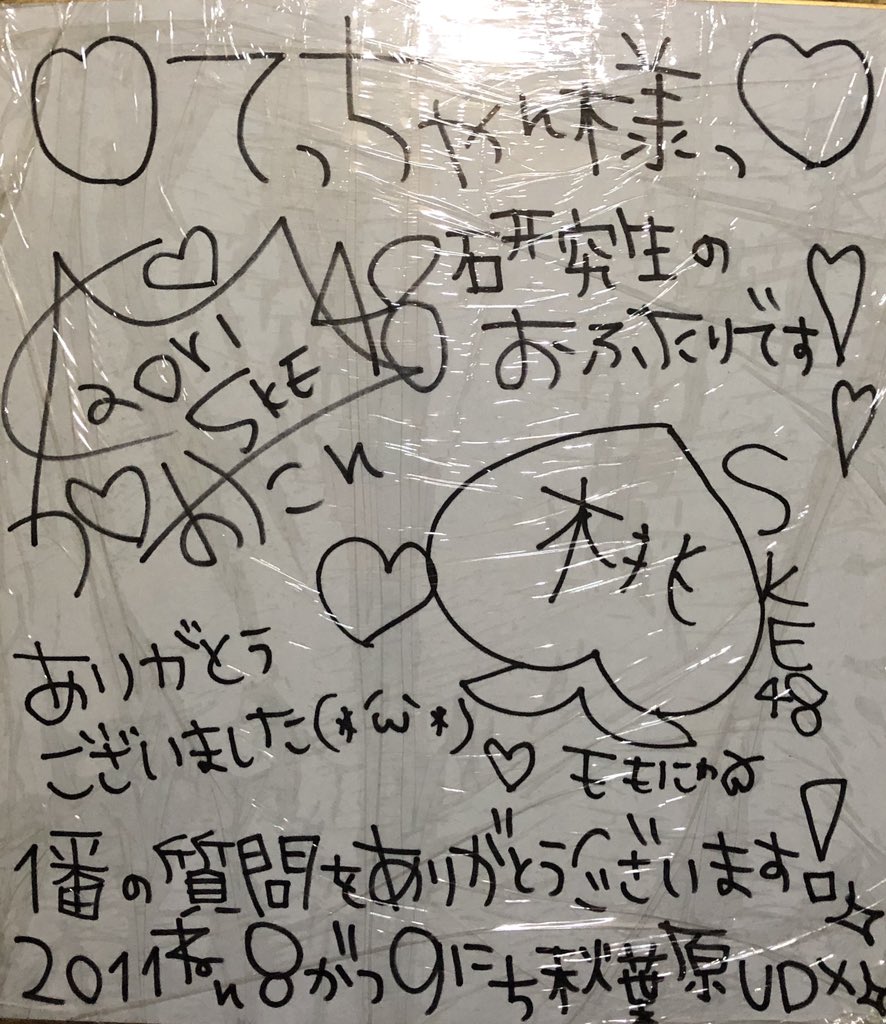 てっちゃん様、
研究生の
おふたりです!!
2011
SKE48
あこん
SKE48
ありがとう
ございました(*´ω`*)
ももにゃω
1番の質問をありがとうございます!
2011ねん8がつ9にち秋葉原UDX